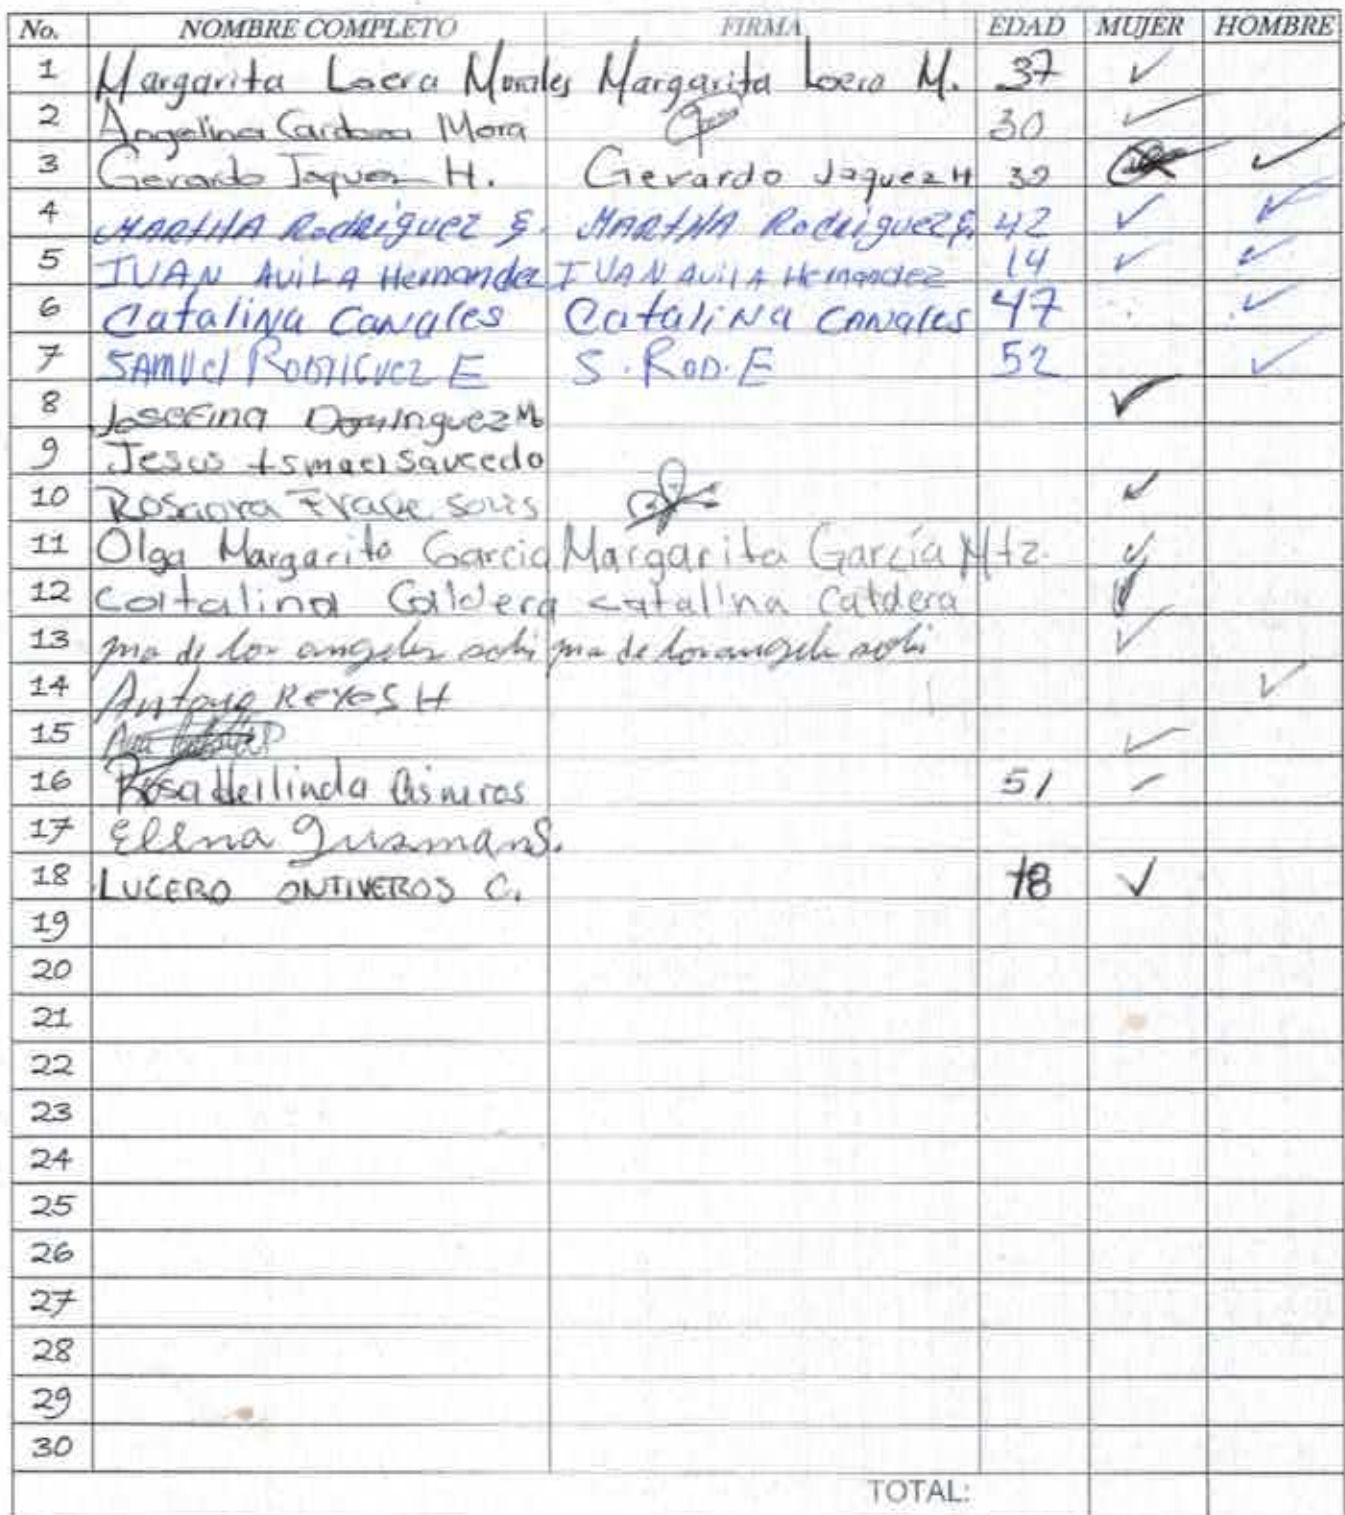 No. NOMBRE COMPLETO FIRMA EDAD MUJER HOMBRE
1 Margarita Loera Morales Margarita Loera M. 37 ✓
2 Angelina Cardoza Mora 30 ✓
3 Gerardo Jaquez H. Gerardo Jaquez H 39 ✓
4 MARTHA Rodriguez E. MARTHA Rodriguez E. 42 ✓ ✓
5 IVAN AVILA Hernandez IVAN AVILA Hernandez 14 ✓ ✓
6 Catalina Canales Catalina Canales 47 ✓
7 SAMUEl RODRIGUEZ E S. ROD. E 52 ✓
8 Josefina Dominguez M. ✓
9 Jesus Ismael Saucedo
10 Solis ✓
11 Olga Margarita Garcia Margarita García Mtz. ✓
12 Catalina Caldera Catalina Caldera ✓
13 ma de los angeles solis ma de los angeles solis ✓
14 Antonio REYES H ✓
15 ✓
16 Rosa Herlinda Cisneros 51 ✓
17 Elena Guzman S.
18 LUCERO ONTIVEROS C. 18 ✓
19
20
21
22
23
24
25
26
27
28
29
30
TOTAL: